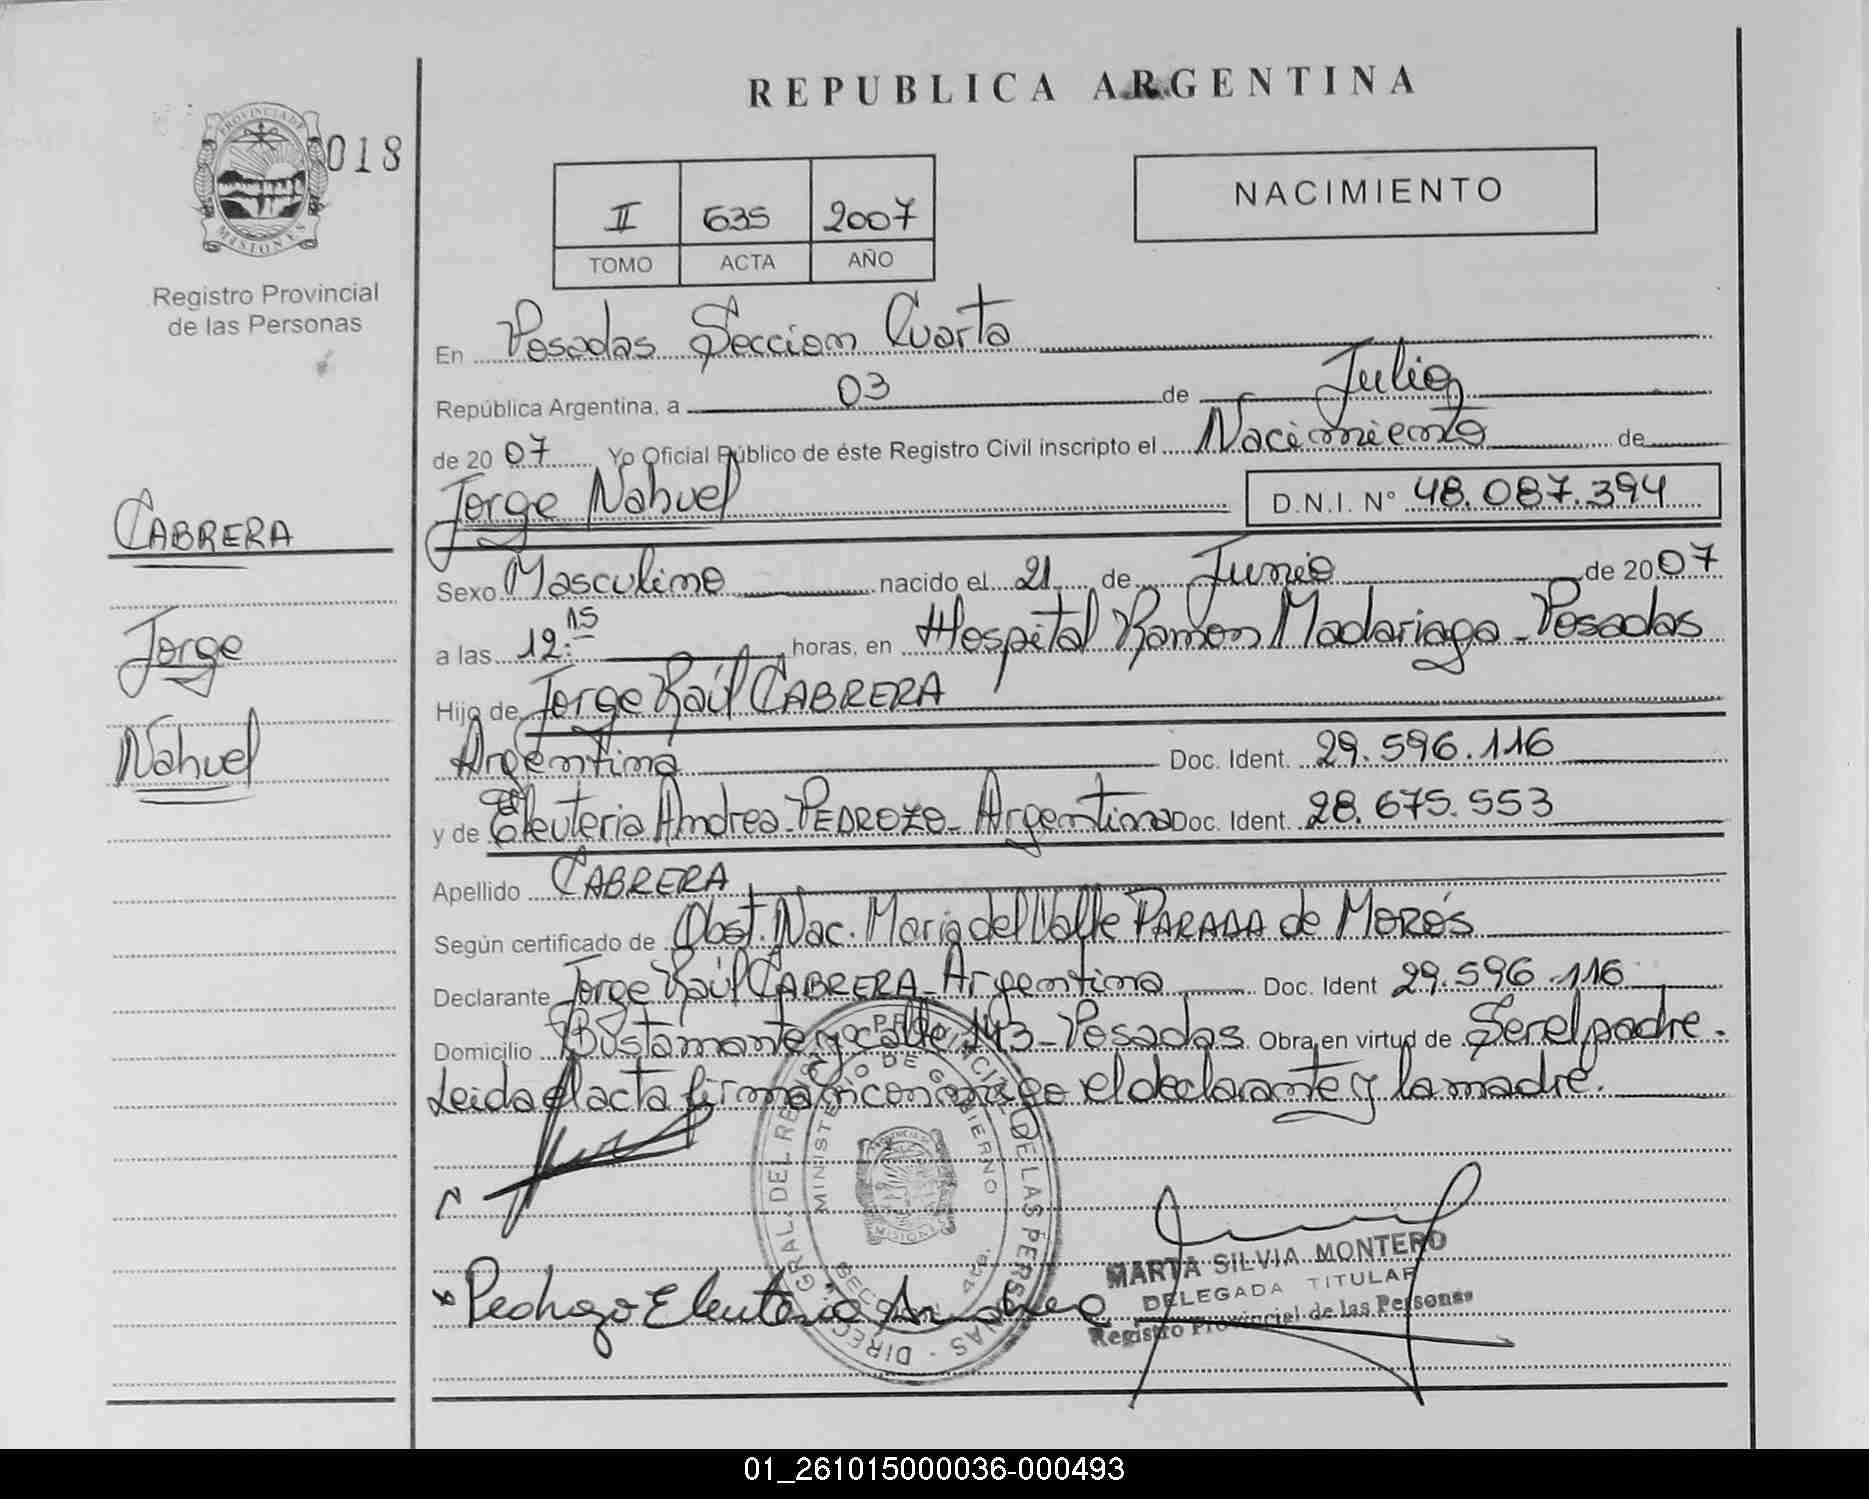 REPUBLICA ARGENTINA
PROVINCIA DE
MISIONES
018
Registro Provincial
de las Personas
II 635 2007
TOMO ACTA AÑO
NACIMIENTO
En Posadas Seccion Cuarta
República Argentina, a 03 de Julio
de 2007 Yo Oficial Público de éste Registro Civil inscripto el Nacimiento de
Jorge Nahuel D.N.I. N° 48.087.394
CABRERA
Jorge
Nahuel
Sexo Masculino nacido el 21 de Junio de 2007
a las 12:15 horas, en Hospital Ramon Madariaga - Posadas
Hijo de Jorge Raúl CABRERA
Argentina Doc. Ident. 29.596.116
y de Eleuteria Andrea - PEDROZO - Argentina Doc. Ident. 28.675.553
Apellido CABRERA
Según certificado de Obst. Nac. Maria del Valle PARADA de MORÓS
Declarante Jorge Raúl CABRERA - Argentina Doc. Ident 29.596.116
Domicilio Bustamante y calle 143 - Posadas Obra en virtud de Ser el padre.
Leida el acta firman conmigo el declarante y la madre.
DIRECC. GRAL. DEL REGISTRO PROVINCIAL DE LAS PERSONAS
MINISTERIO DE GOBIERNO
MISIONES
SECCION 4ta.
MARTA SILVIA MONTERO
DELEGADA TITULAR
Registro Provincial de las Personas
Pedrozo Eleuteria Andrea
01_261015000036-000493